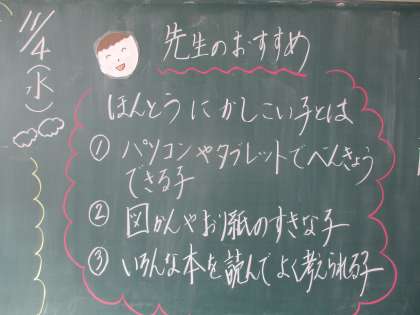 11/4(水)
先生のおすすめ
ほんとうにかしこい子とは
① パソコンやタブレットでべんきょう
できる子
② 図かんやお手紙のすきな子
③ いろんな本を読んでよく考えられる子